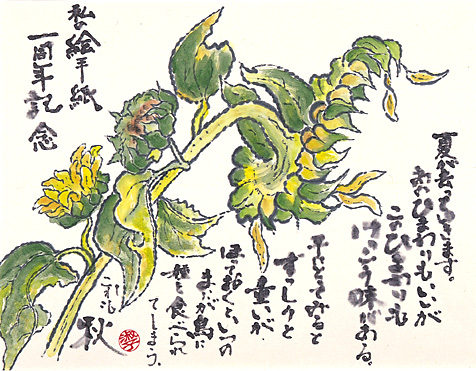 私の絵手紙
一周年記念
夏が去っていきます。
あのひまわりもいいが
このひまわりも
けっこう味がある。
手にとってみると
ずっしりと
重いが
ほっておくといつの
まにか鳥に
種を食べられ
てしまう。
これも
秋